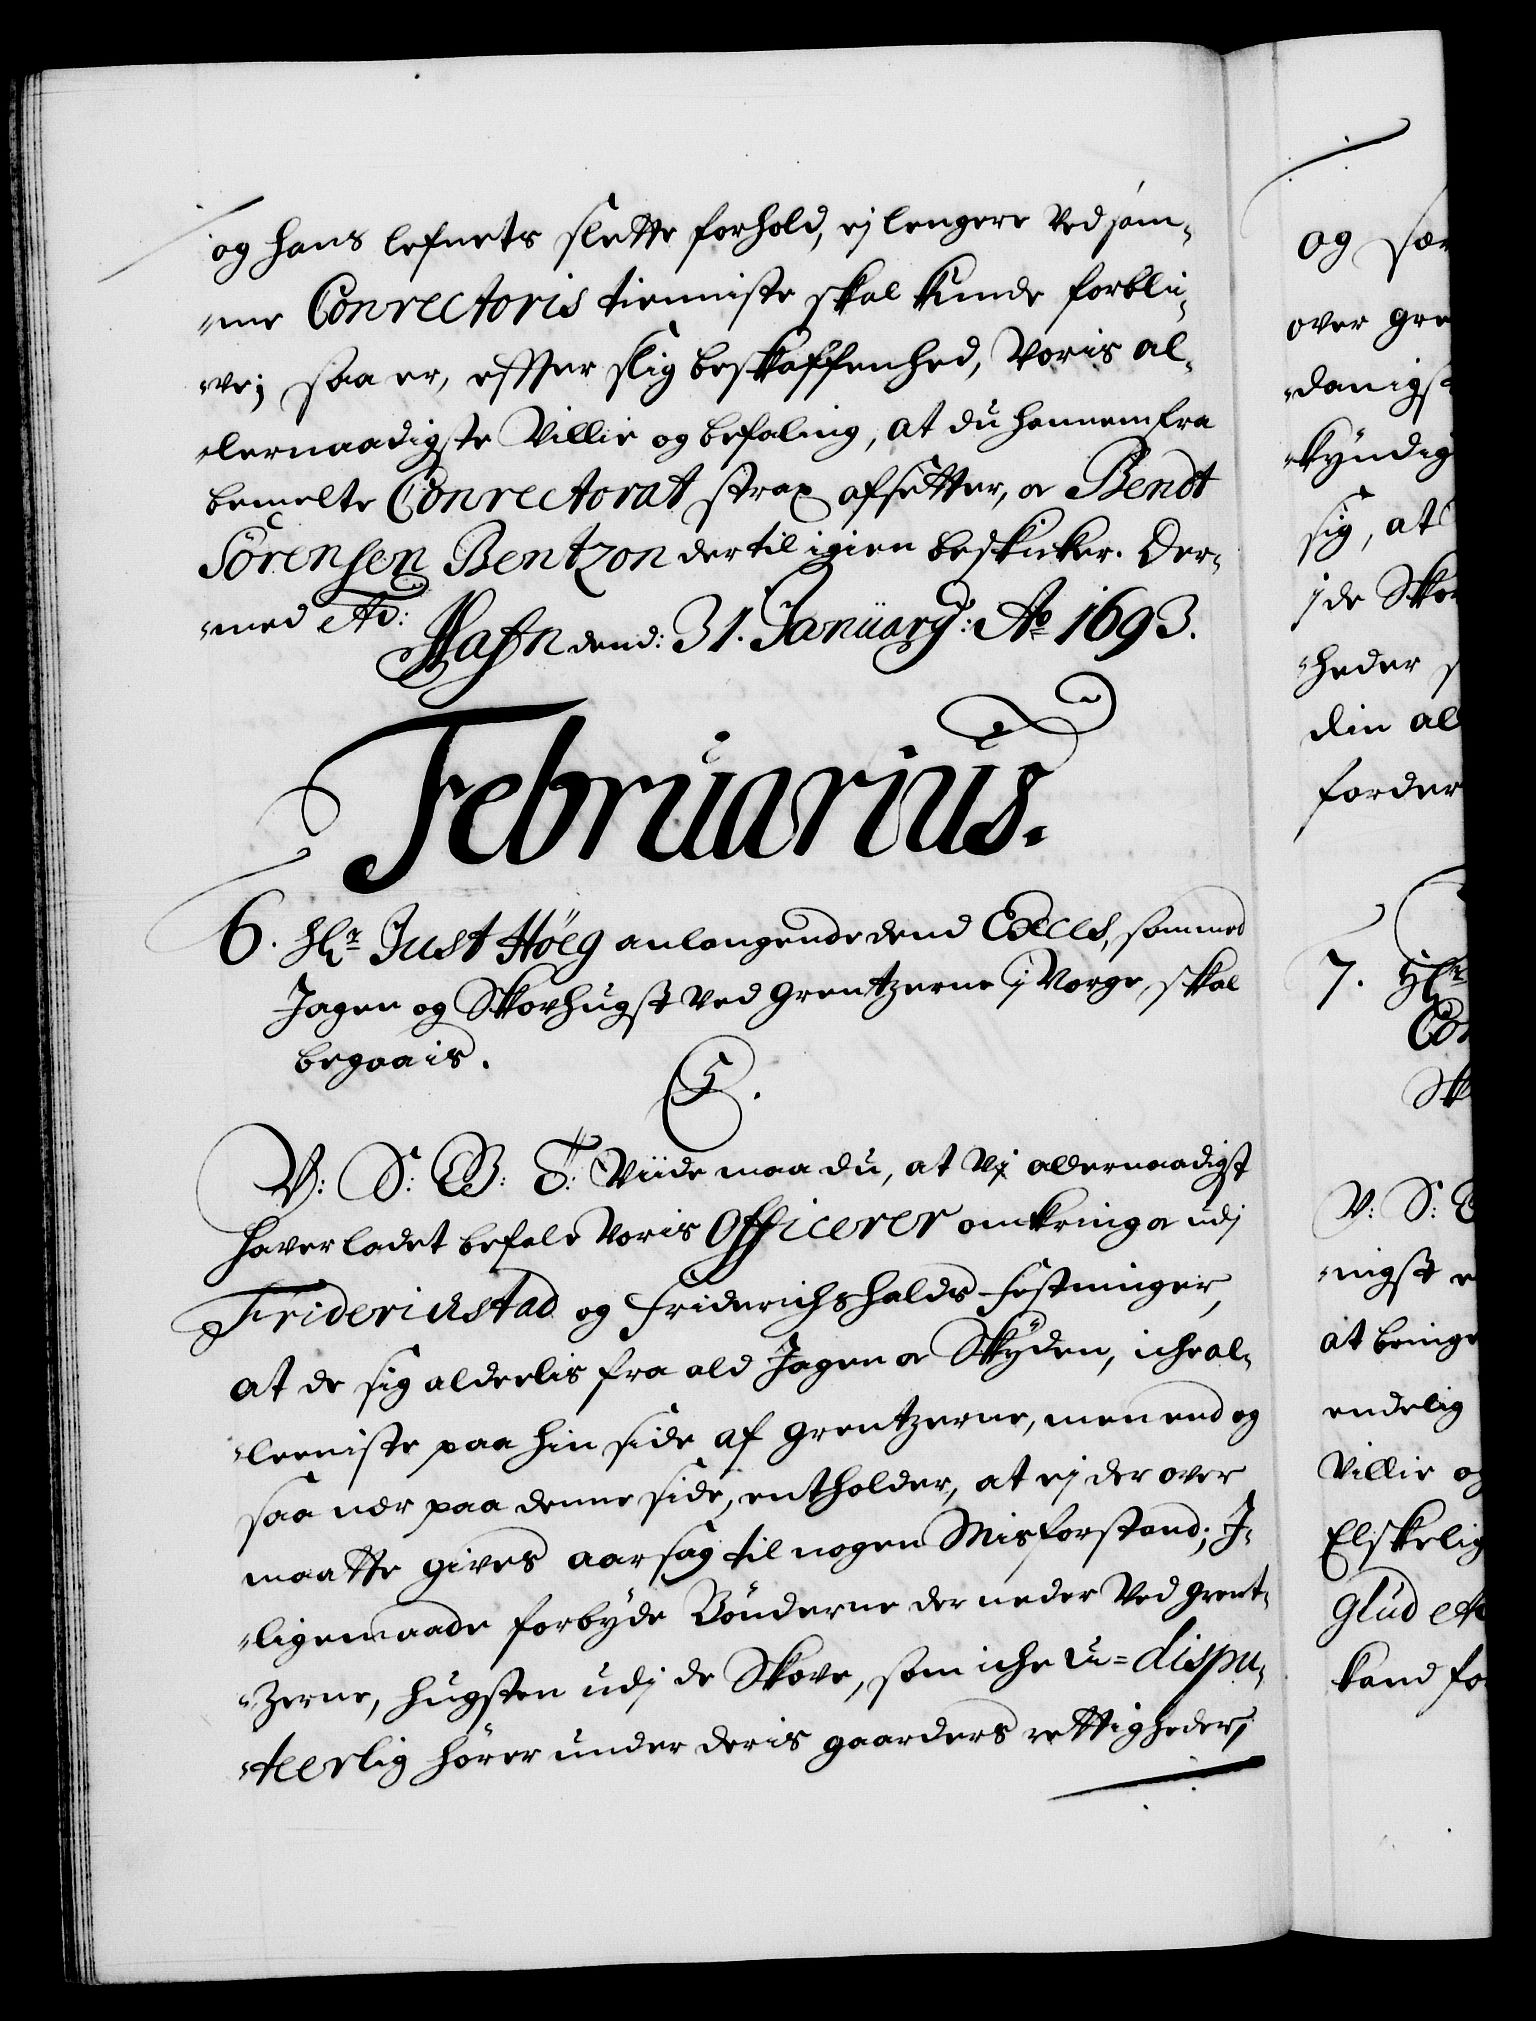 og hans lefnets slette forhold, ej lengere ved sam-
-me Conrectoris tienniste skal kunde forbli-
-ve; saa er, effter slig beskaffenhed, Voris al-
-lernaadigste Villie og befaling, at du hannem fra
bemelte Conrectorat strax afsetter, oc Bendt
Sörensen Bentzon dertil igien beskicker. Der-
-med etc:
Hafn dend: 31. Januarj: Ao 1693.
Februarius.
6. Hr Just Höeg anlangende dend Exces, som med
Jagen og Skovhugst ved Grentzerne i Norge, skal
begaais.
C5.
V: S: G: T: Viide maa du, at Vj allernaadigst
haver ladet befale Voris Officerer omkring oc udj
Friderichstad og Friderichshalds Festninger,
at de sig alderlis fra ald Jagen oc Skyden, iche al-
-leeniste paa hin side af Grentzerne, men end og
saa nær paa denne side, entholder, at ej der over
maatte gives aarsag til nogen Misforstand; J-
-ligemaade forbyde Bönderne der neder ved Grent-
-zerne, hugsten udj de Skove, som iche u-dispu-
-teerlig hörer under deris gaarders rettigheder;
og
over gre
-danigst
-kyndig
sig, at
j de Skov
-heder
din al
forder
7. Hr
V: S:
-nigst
at
endelig
Villie og
Elskelig
Glud etc
kand